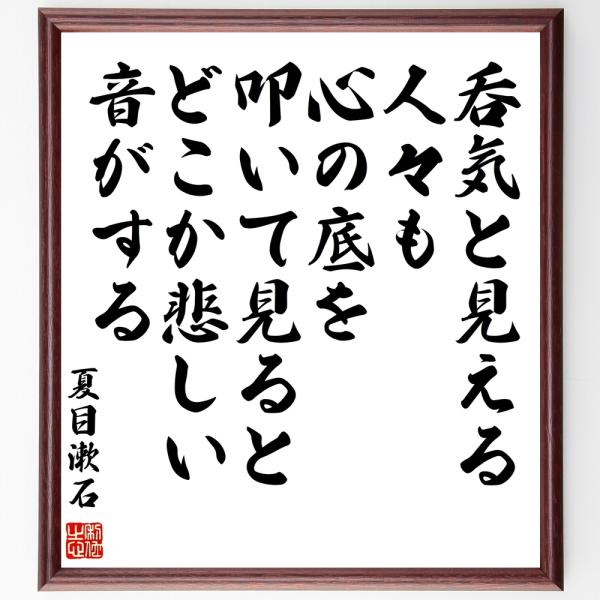 呑気と見える
人々も
心の底を
叩いて見ると
どこか悲しい
音がする
夏目漱石